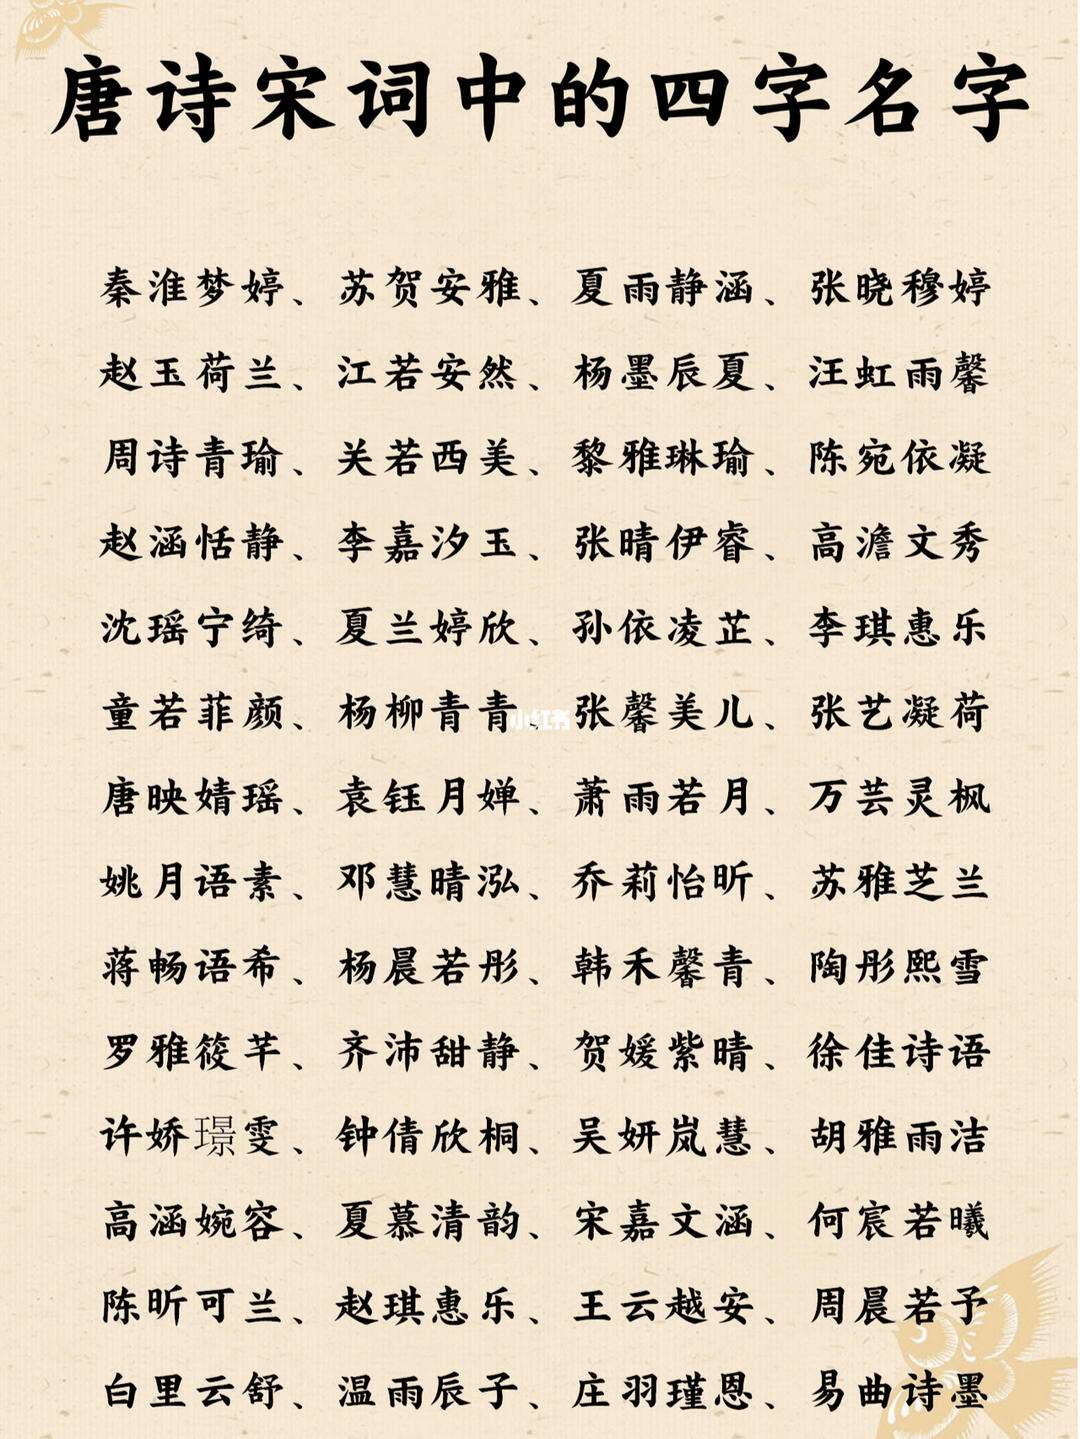 唐诗宋词中的四字名字
秦淮梦婷、苏贺安雅、夏雨静涵、张晓穆婷
赵玉荷兰、江若安然、杨墨辰夏、汪虹雨馨
周诗青瑜、关若西美、黎雅琳瑜、陈宛依凝
赵涵恬静、李嘉汐玉、张晴伊睿、高澹文秀
沈瑶宁绮、夏兰婷欣、孙依凌芷、李琪惠乐
童若菲颜、杨柳青青、张馨美儿、张艺凝荷
小红书
唐映婧瑶、袁钰月婵、萧雨若月、万芸灵枫
姚月语素、邓慧晴泓、乔莉怡昕、苏雅芝兰
蒋畅语希、杨晨若彤、韩禾馨青、陶彤熙雪
罗雅筱芊、齐沛甜静、贺媛紫晴、徐佳诗语
许娇璟雯、钟倩欣桐、吴妍岚慧、胡雅雨洁
高涵婉容、夏慕清韵、宋嘉文涵、何宸若曦
陈昕可兰、赵琪惠乐、王云越安、周晨若予
白里云舒、温雨辰子、庄羽瑾恩、易曲诗墨